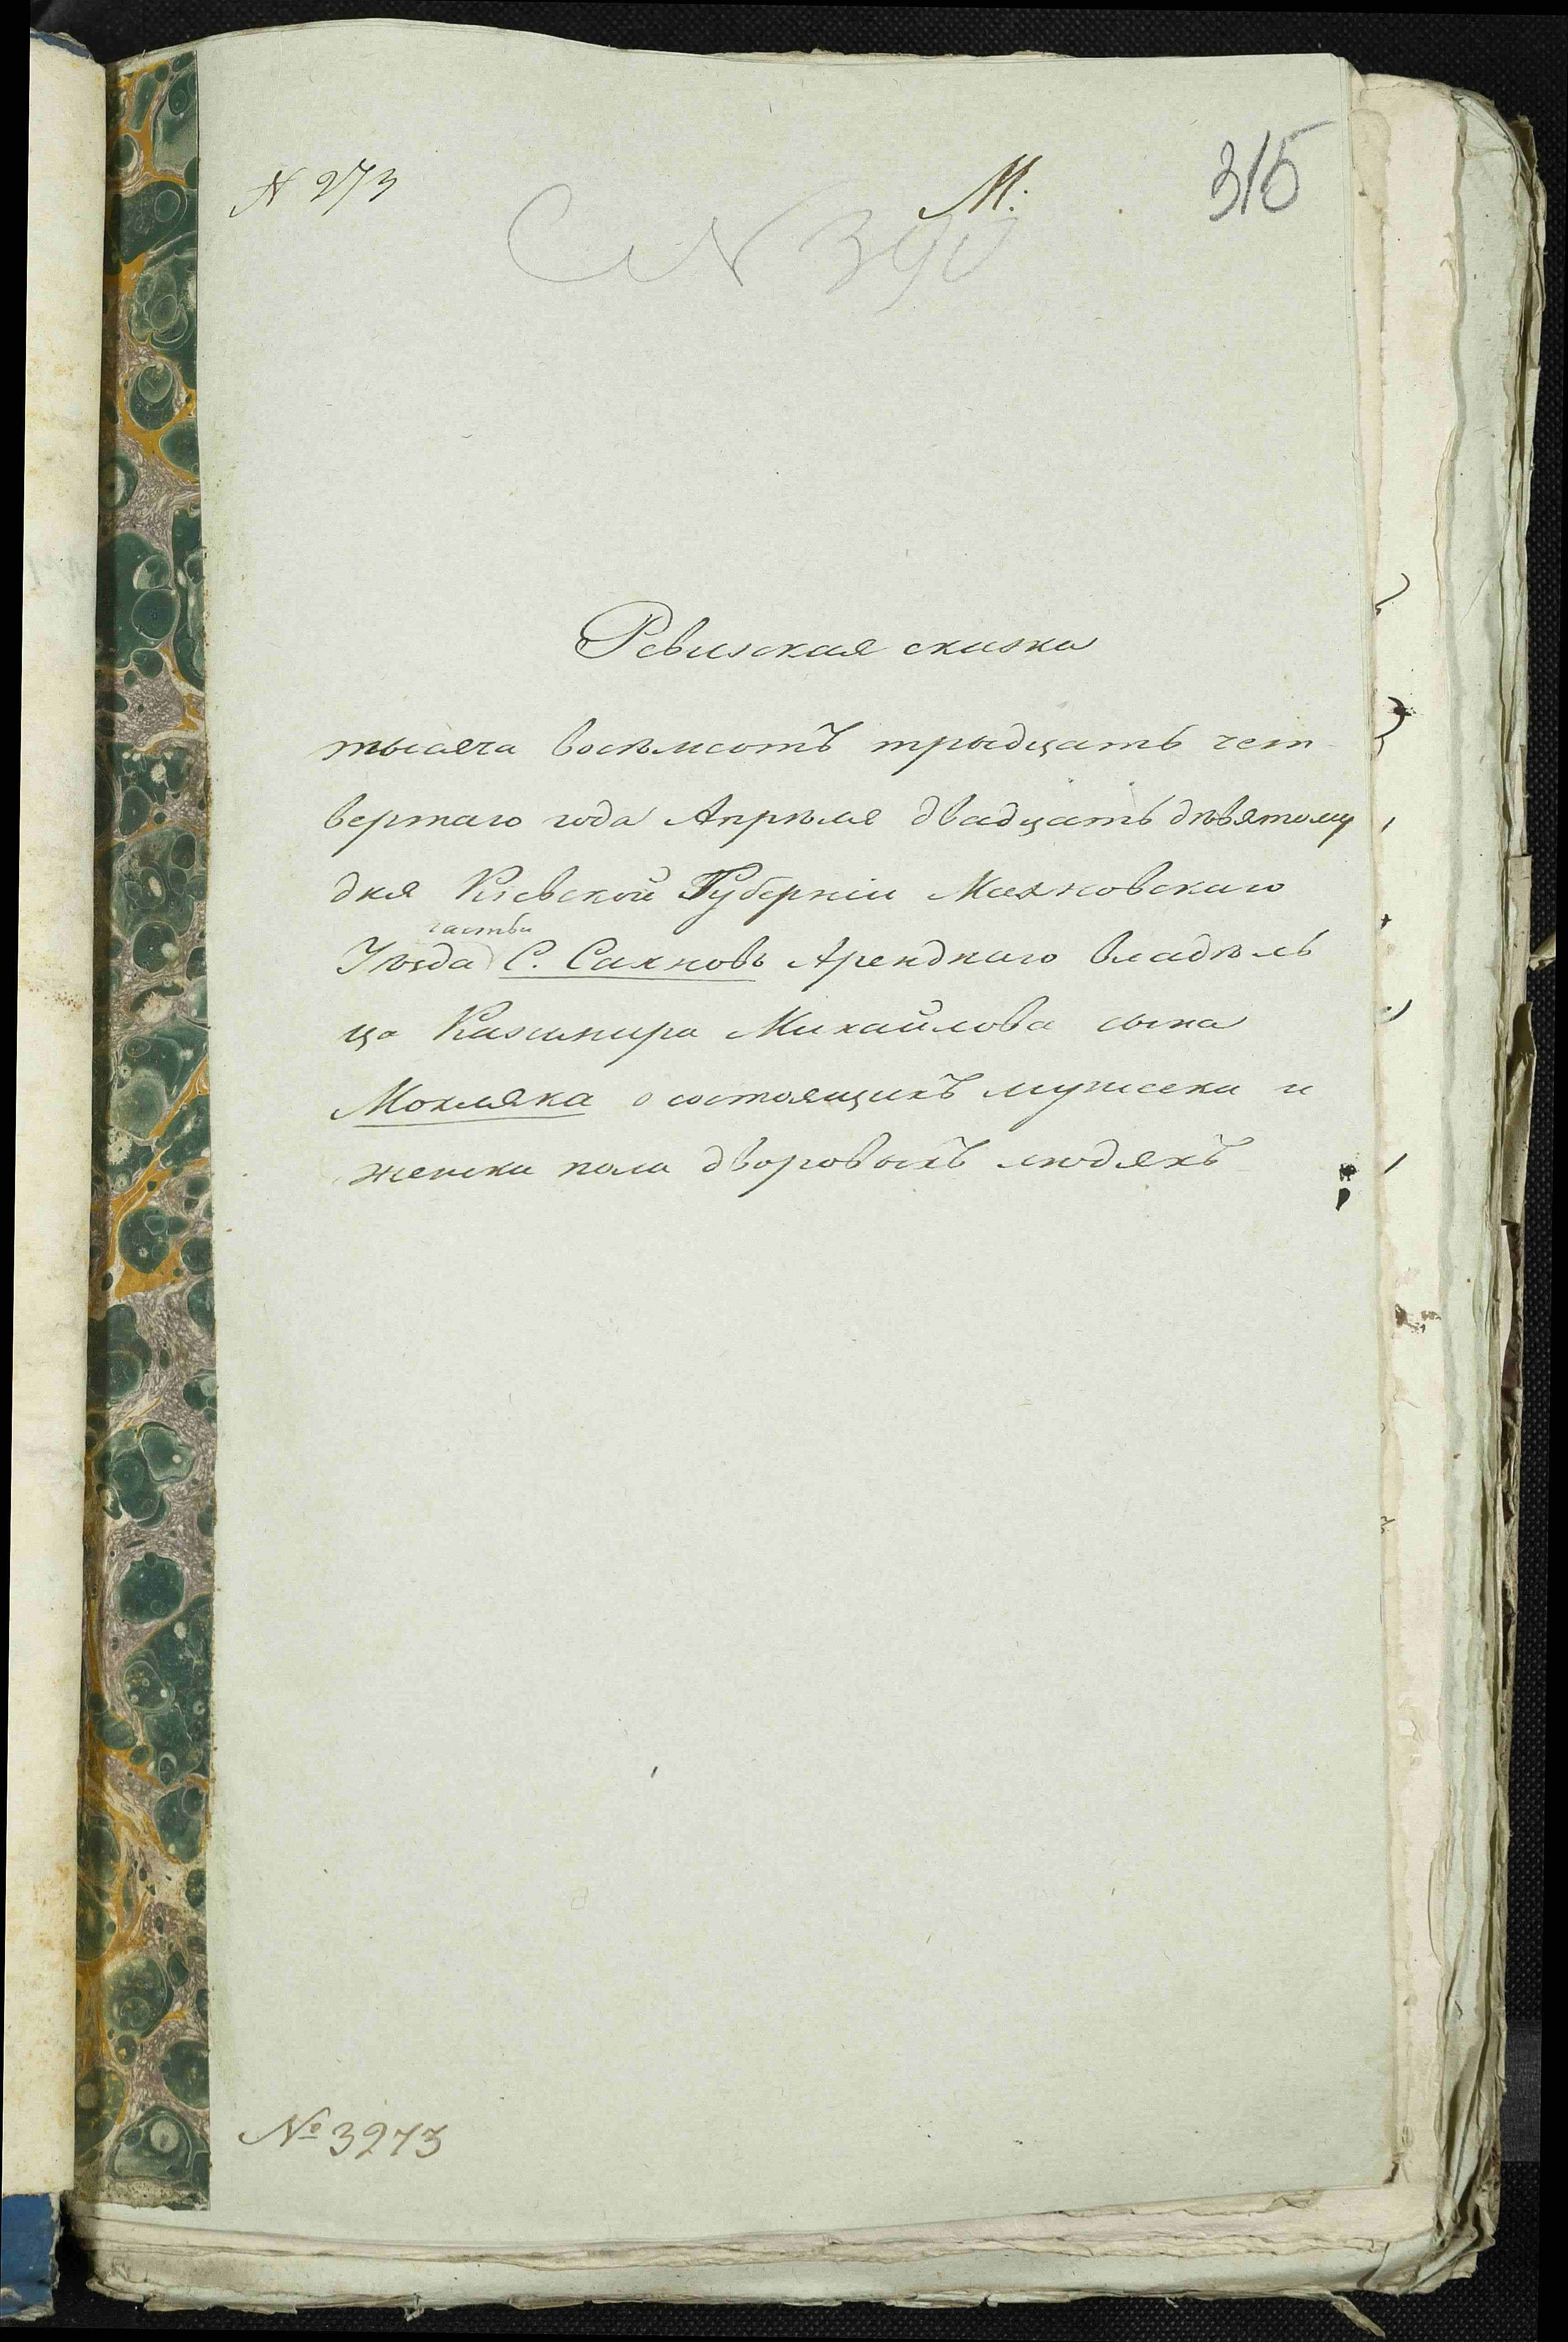 N 273
М:
315
N 390
Ревизская сказка
тысяча восѣмсотъ трыдцать чет
вертаго года Апрѣля двадцать дѣвятому
дня Кіевской Губерніи Махновскаго
части
Уѣзда С. Сахновъ Арендного владѣль
ца Казимира Михайлова сына
Мокляка о состоящихъ мужеска и
женска пола дворовыхъ людяхъ
№ 3273